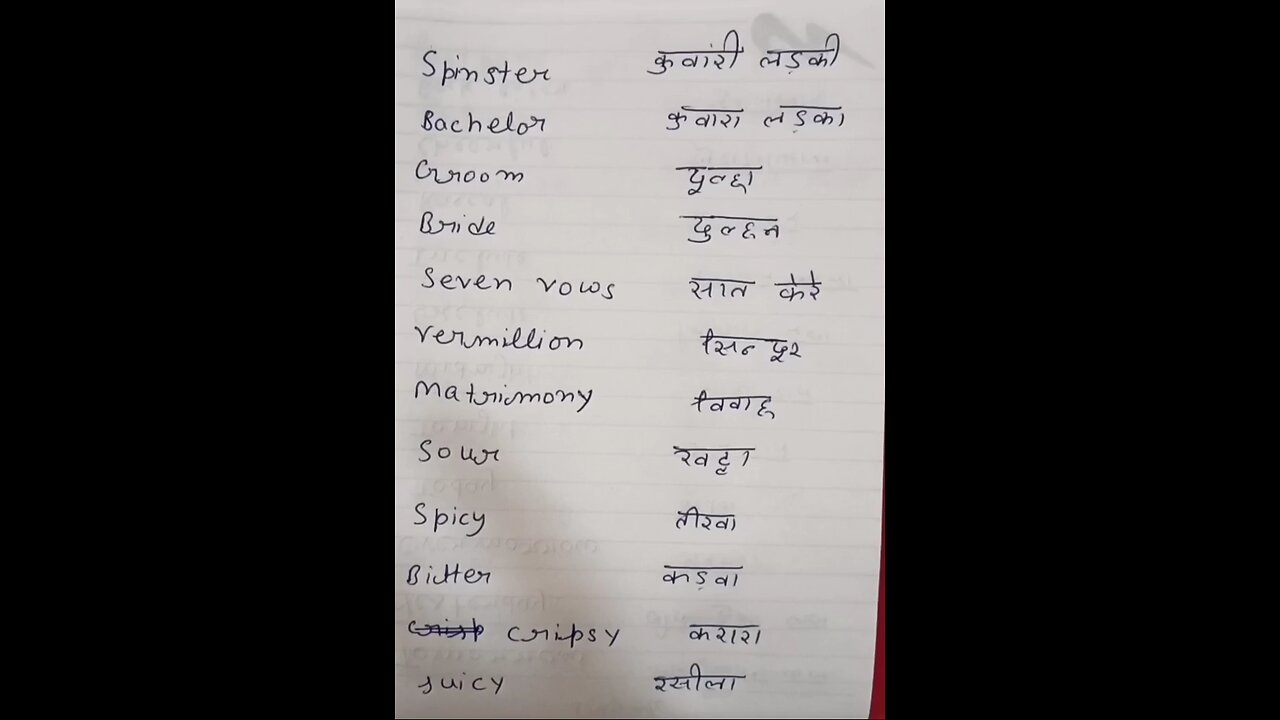 Spinster कुवांरी लड़की
Bachelor कुंवारा लड़का
Groom दूल्हा
Bride दुल्हन
Seven vows सात फेरे
Vermillion सिन्दूर
Matrimony विवाह
Sour खट्टा
Spicy तीखा
Bitter कड़वा
cripsy करारा
Juicy रसीला